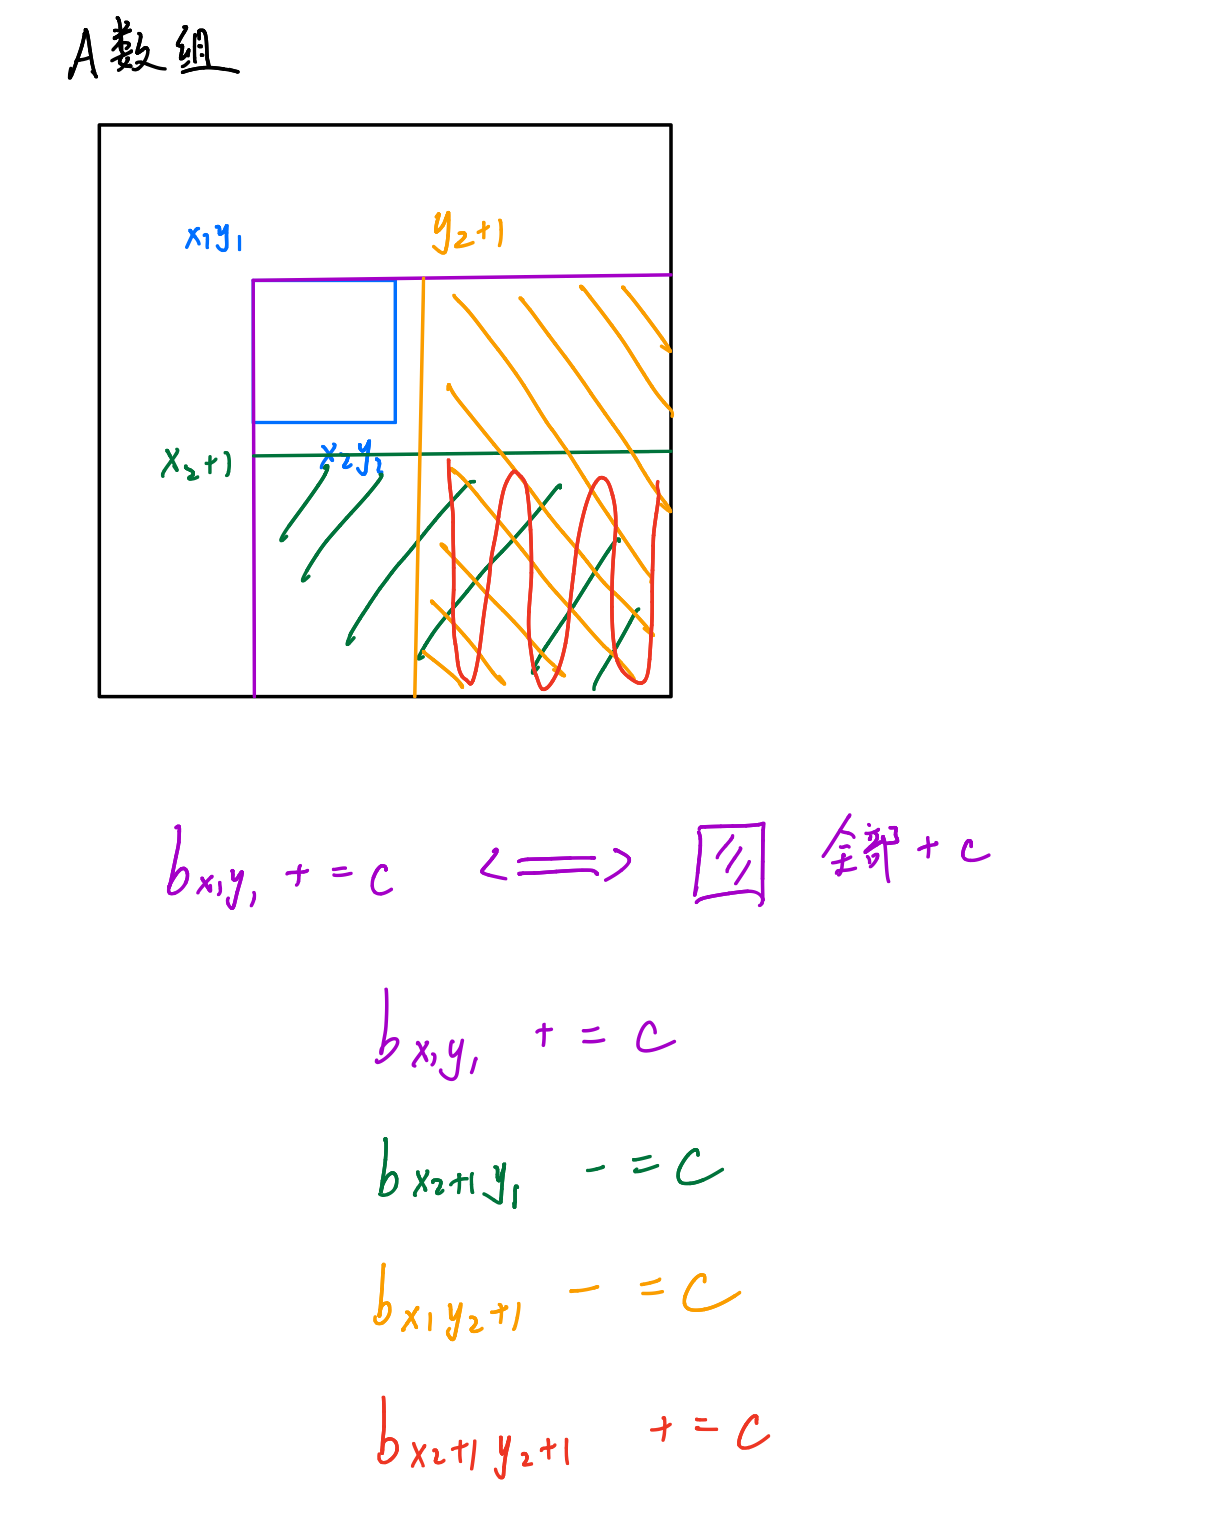 A数组
x₁y₁ y₂+1
x₂+1 x₂y₂
bx₁y₁ += c <==> 全部 + c
bx₁y₁ += c
bx₂+1y₁ -= c
bx₁y₂+1 -= c
bx₂+1y₂+1 += c